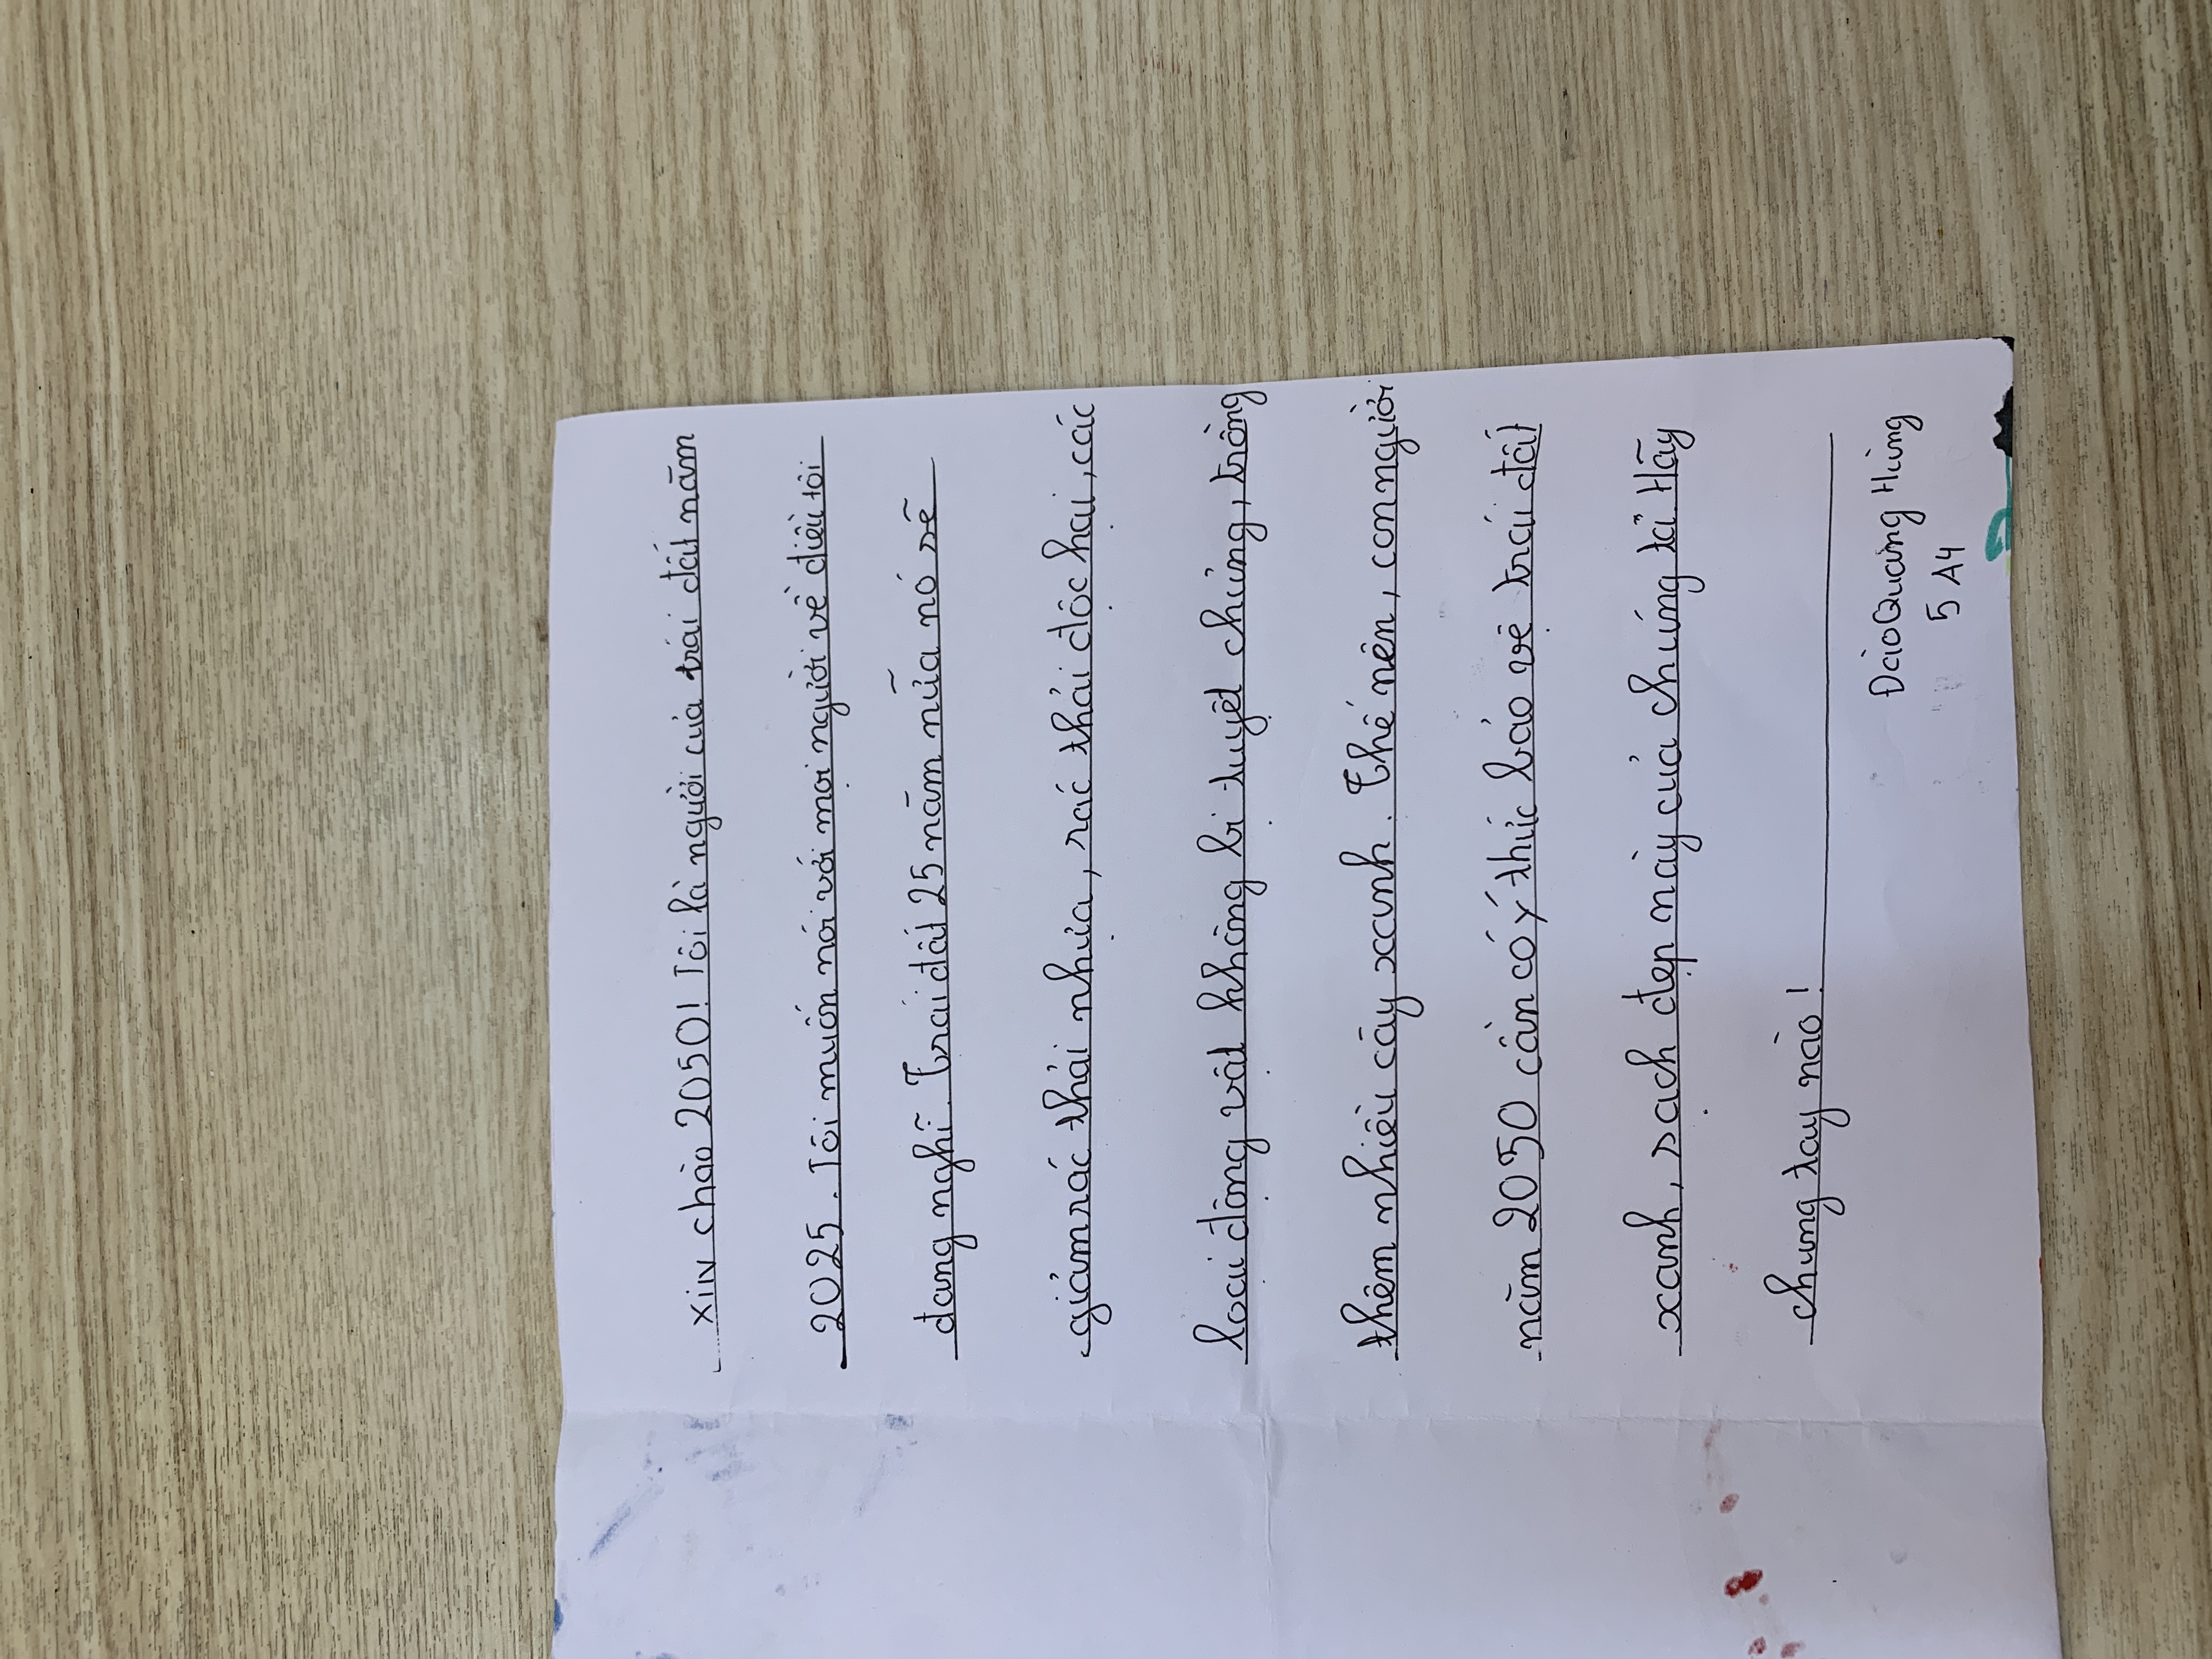 Xin chào 2050! Tôi là người của trái đất năm
2025. Tôi muốn nói với mọi người về điều tôi
đang nghĩ. Trái đất 25 năm nữa nó sẽ
giảm rác thải nhựa, rác thải độc hại, các
loài động vật không bị tuyệt chủng, trồng
thêm nhiều cây xanh. Thế nên, con người
năm 2050 cần có ý thức bảo vệ trái đất
xanh, sạch đẹp này của chúng ta. Hãy
chung tay nào!
Đào Quang Hùng
5A4